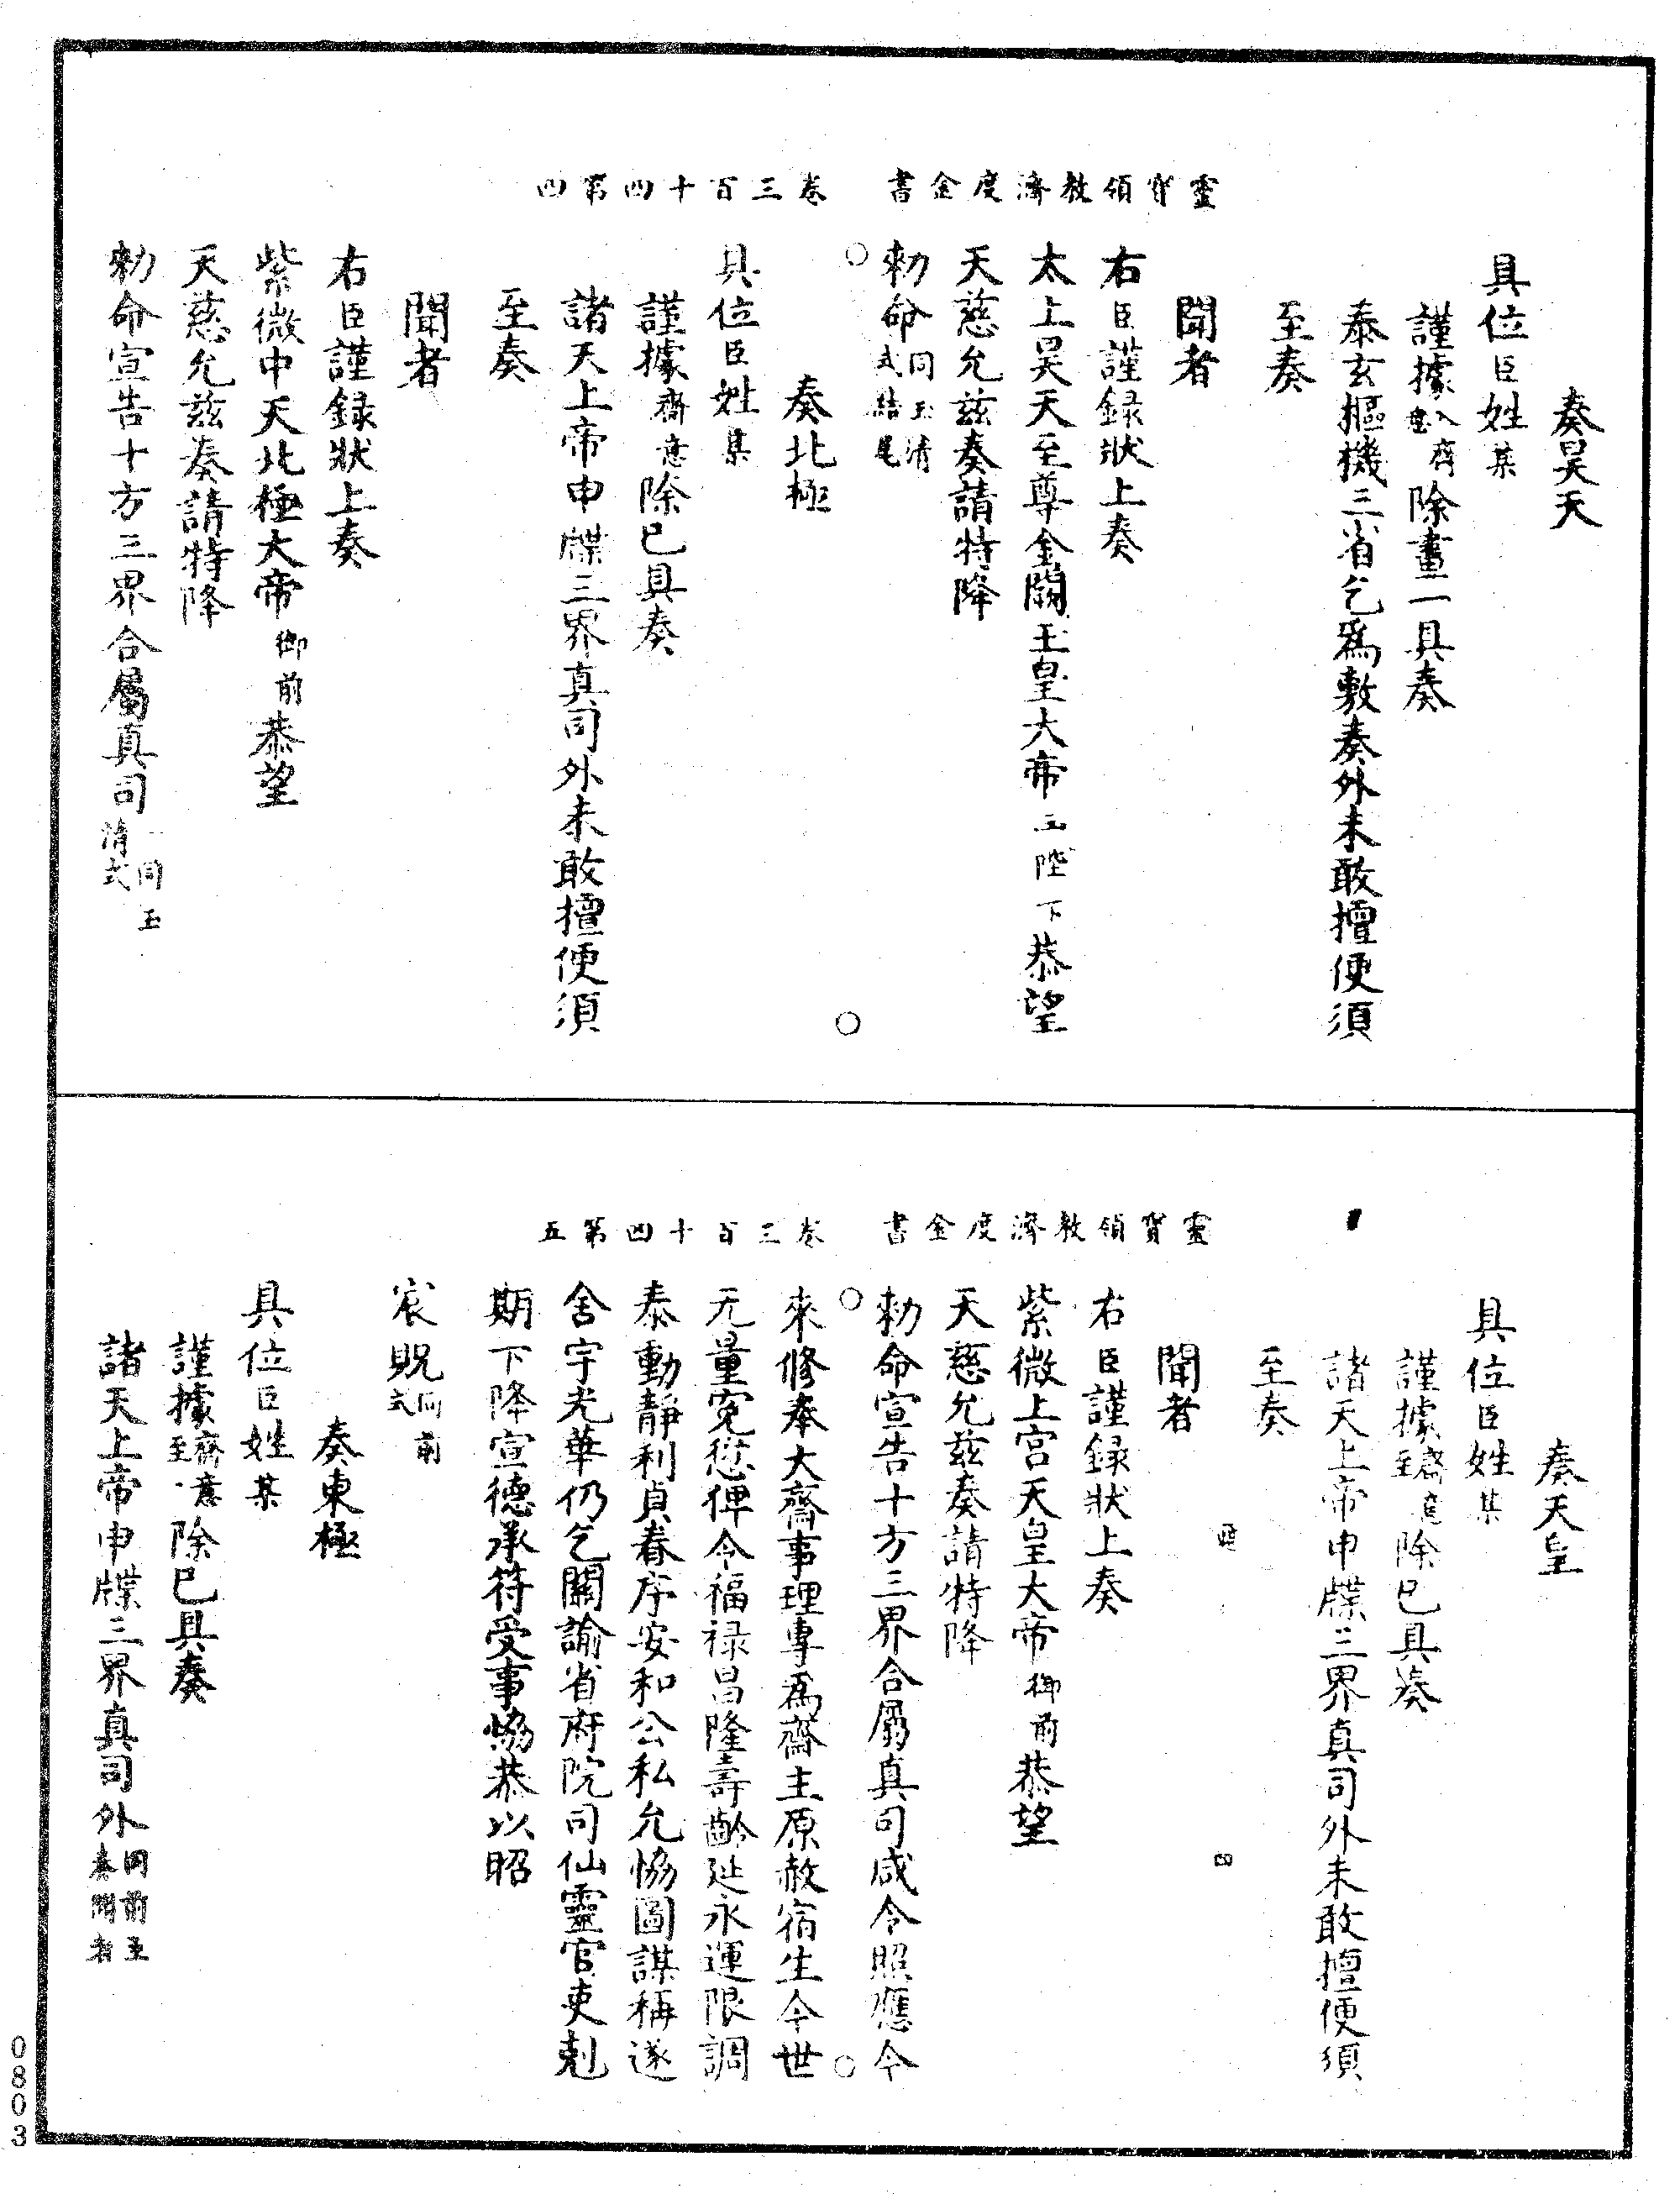 奏昊天
具位臣姓某
謹據入齊意除畫一具奏
泰玄樞機三省乞爲敷奏外未敢擅便須
至奏
聞者
右臣謹録狀上奏
太上昊天至尊金闕玉皇大帝玉陛下恭望
天慈允兹奏請特降
勑命同玉清式結尾
靈寳領教濟度金書
卷三百十四第四
奏北極
具位臣姓某
謹據齋意除已具奏
諸天上帝申牒三界真司外未敢擅便須
至奏
聞者
右臣謹録狀上奏
紫微中天北極大帝御前恭望
天慈允兹奏請特降
勑命宣告十方三界合屬真司同玉清式
奏天皇
具位臣姓某
謹據齋意至除已具奏
諸天上帝申牒三界真司外未敢擅便須
至奏
聞者
四
右臣謹録狀上奏
紫微上宫天皇大帝御前恭望
天慈允兹奏請特降
勑命宣告十方三界合屬真司咸令照應今
靈寳領教濟度金書
卷三百十四第五
來修奉大齋事理專爲齋主原赦宿生今世
无量寃愆俾令福禄昌隆壽齡延永運限調
泰動靜利貞春序安和公私允恊圖謀稱遂
舍宇光華仍乞關諭省府院司仙靈官吏剋
期下降宣德承符受事恊恭以昭
宸貺同前式
奏東極
具位臣姓某
謹據齋意至除已具奏
諸天上帝申牒三界真司外同前至奏聞者
0803